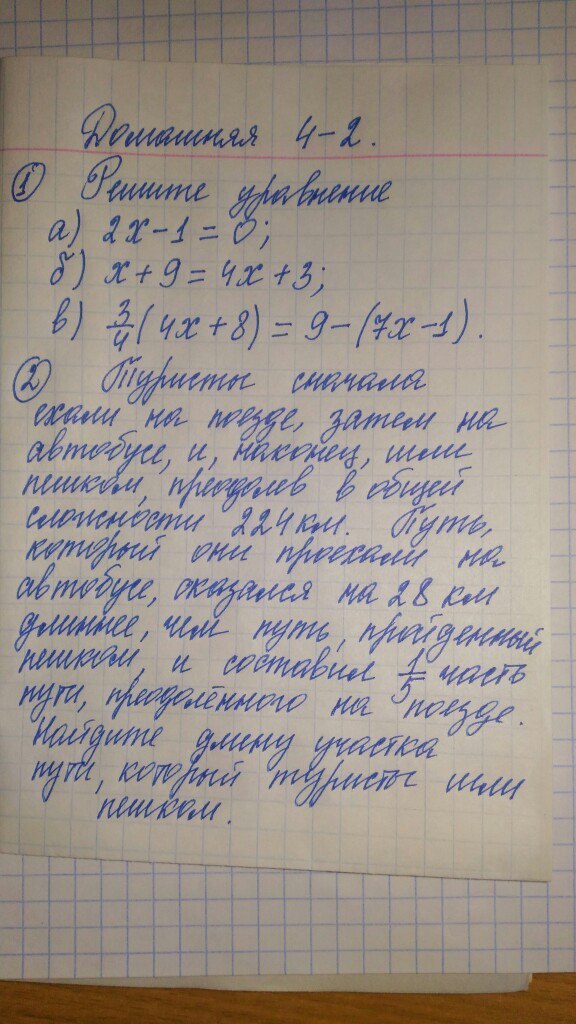 Домашняя 4-2.
① Решите уравнение
а) 2x-1=0;
б) x+9=4x+3;
в) 3/4(4x+8)=9-(7x-1).
② Туристы сначала
ехали на поезде, затем на
автобусе, и, наконец, шли
пешком, преодолев в общей
сложности 224 км. Путь,
который они проехали на
автобусе, оказался на 28 км
длиннее, чем путь, пройденный
пешком, и составил 1/5 часть
пути, преодолённого на поезде.
Найдите длину участка
пути, который туристы шли
пешком.